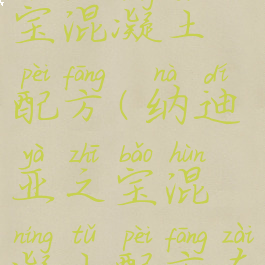 宝混凝土
pèi fāng nà dí
配方（纳迪
yà zhī bǎo hùn
亚之宝混
níng tǔ pèi fāng zài
凝土配方在